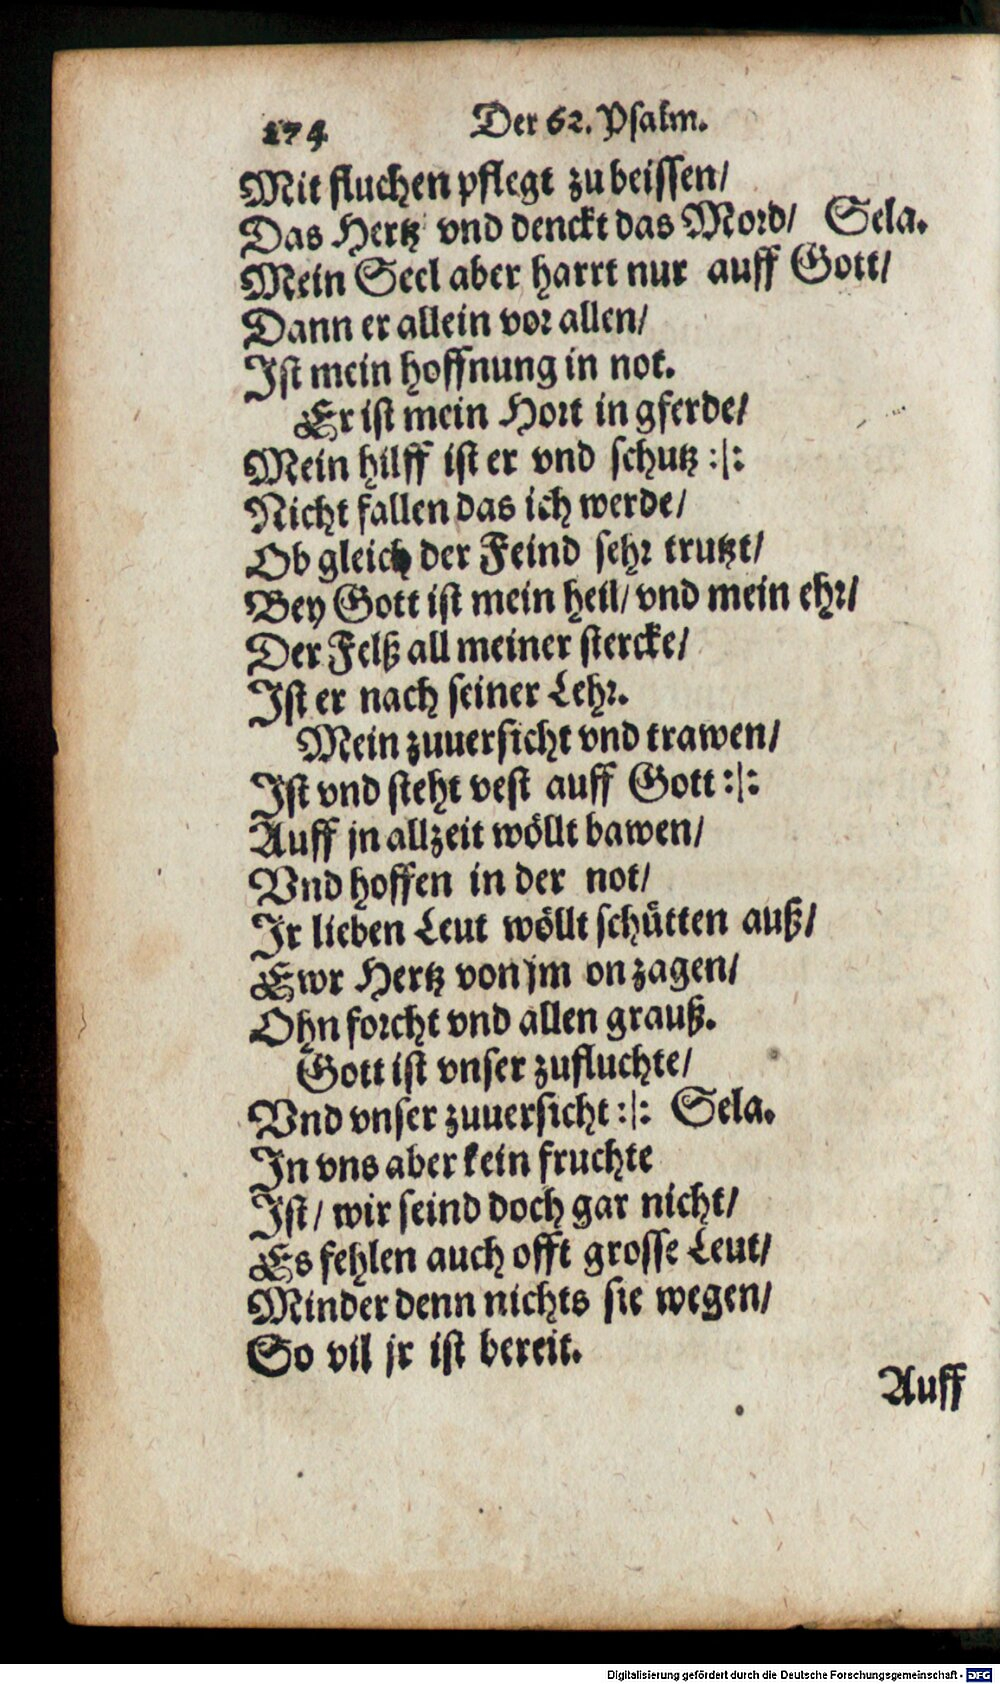 174 Der 62. Psalm.
Mit fluchen pflegt zu beissen/
Das Hertz vnd denckt das Mord/ Sela.
Mein Seel aber harrt nur auff Gott/
Dann er allein vor allen/
Ist mein hoffnung in not.
Er ist mein Hort in gferde/
Mein hilff ist er vnd schutz :|:
Nicht fallen das ich werde/
Ob gleich der Feind sehr trutzt/
Bey Gott ist mein heil/ vnd mein ehr/
Der Felß all meiner stercke/
Ist er nach seiner Lehr.
Mein zuuersicht vnd trawen/
Ist vnd steht vest auff Gott :|:
Auff jn allzeit wöllt bawen/
Vnd hoffen in der not/
Ir lieben Leut wöllt schütten auß/
Ewr Hertz von jm on zagen/
Ohn forcht vnd allen grauß.
Gott ist vnser zufluchte/
Vnd vnser zuuersicht :|: Sela.
In vns aber kein fruchte
Ist/ wir seind doch gar nicht/
Es fehlen auch offt grosse Leut/
Minder denn nichts sie wegen/
So vil jr ist bereit.
Auff
Digitalisierung gefördert durch die Deutsche Forschungsgemeinschaft - DFG